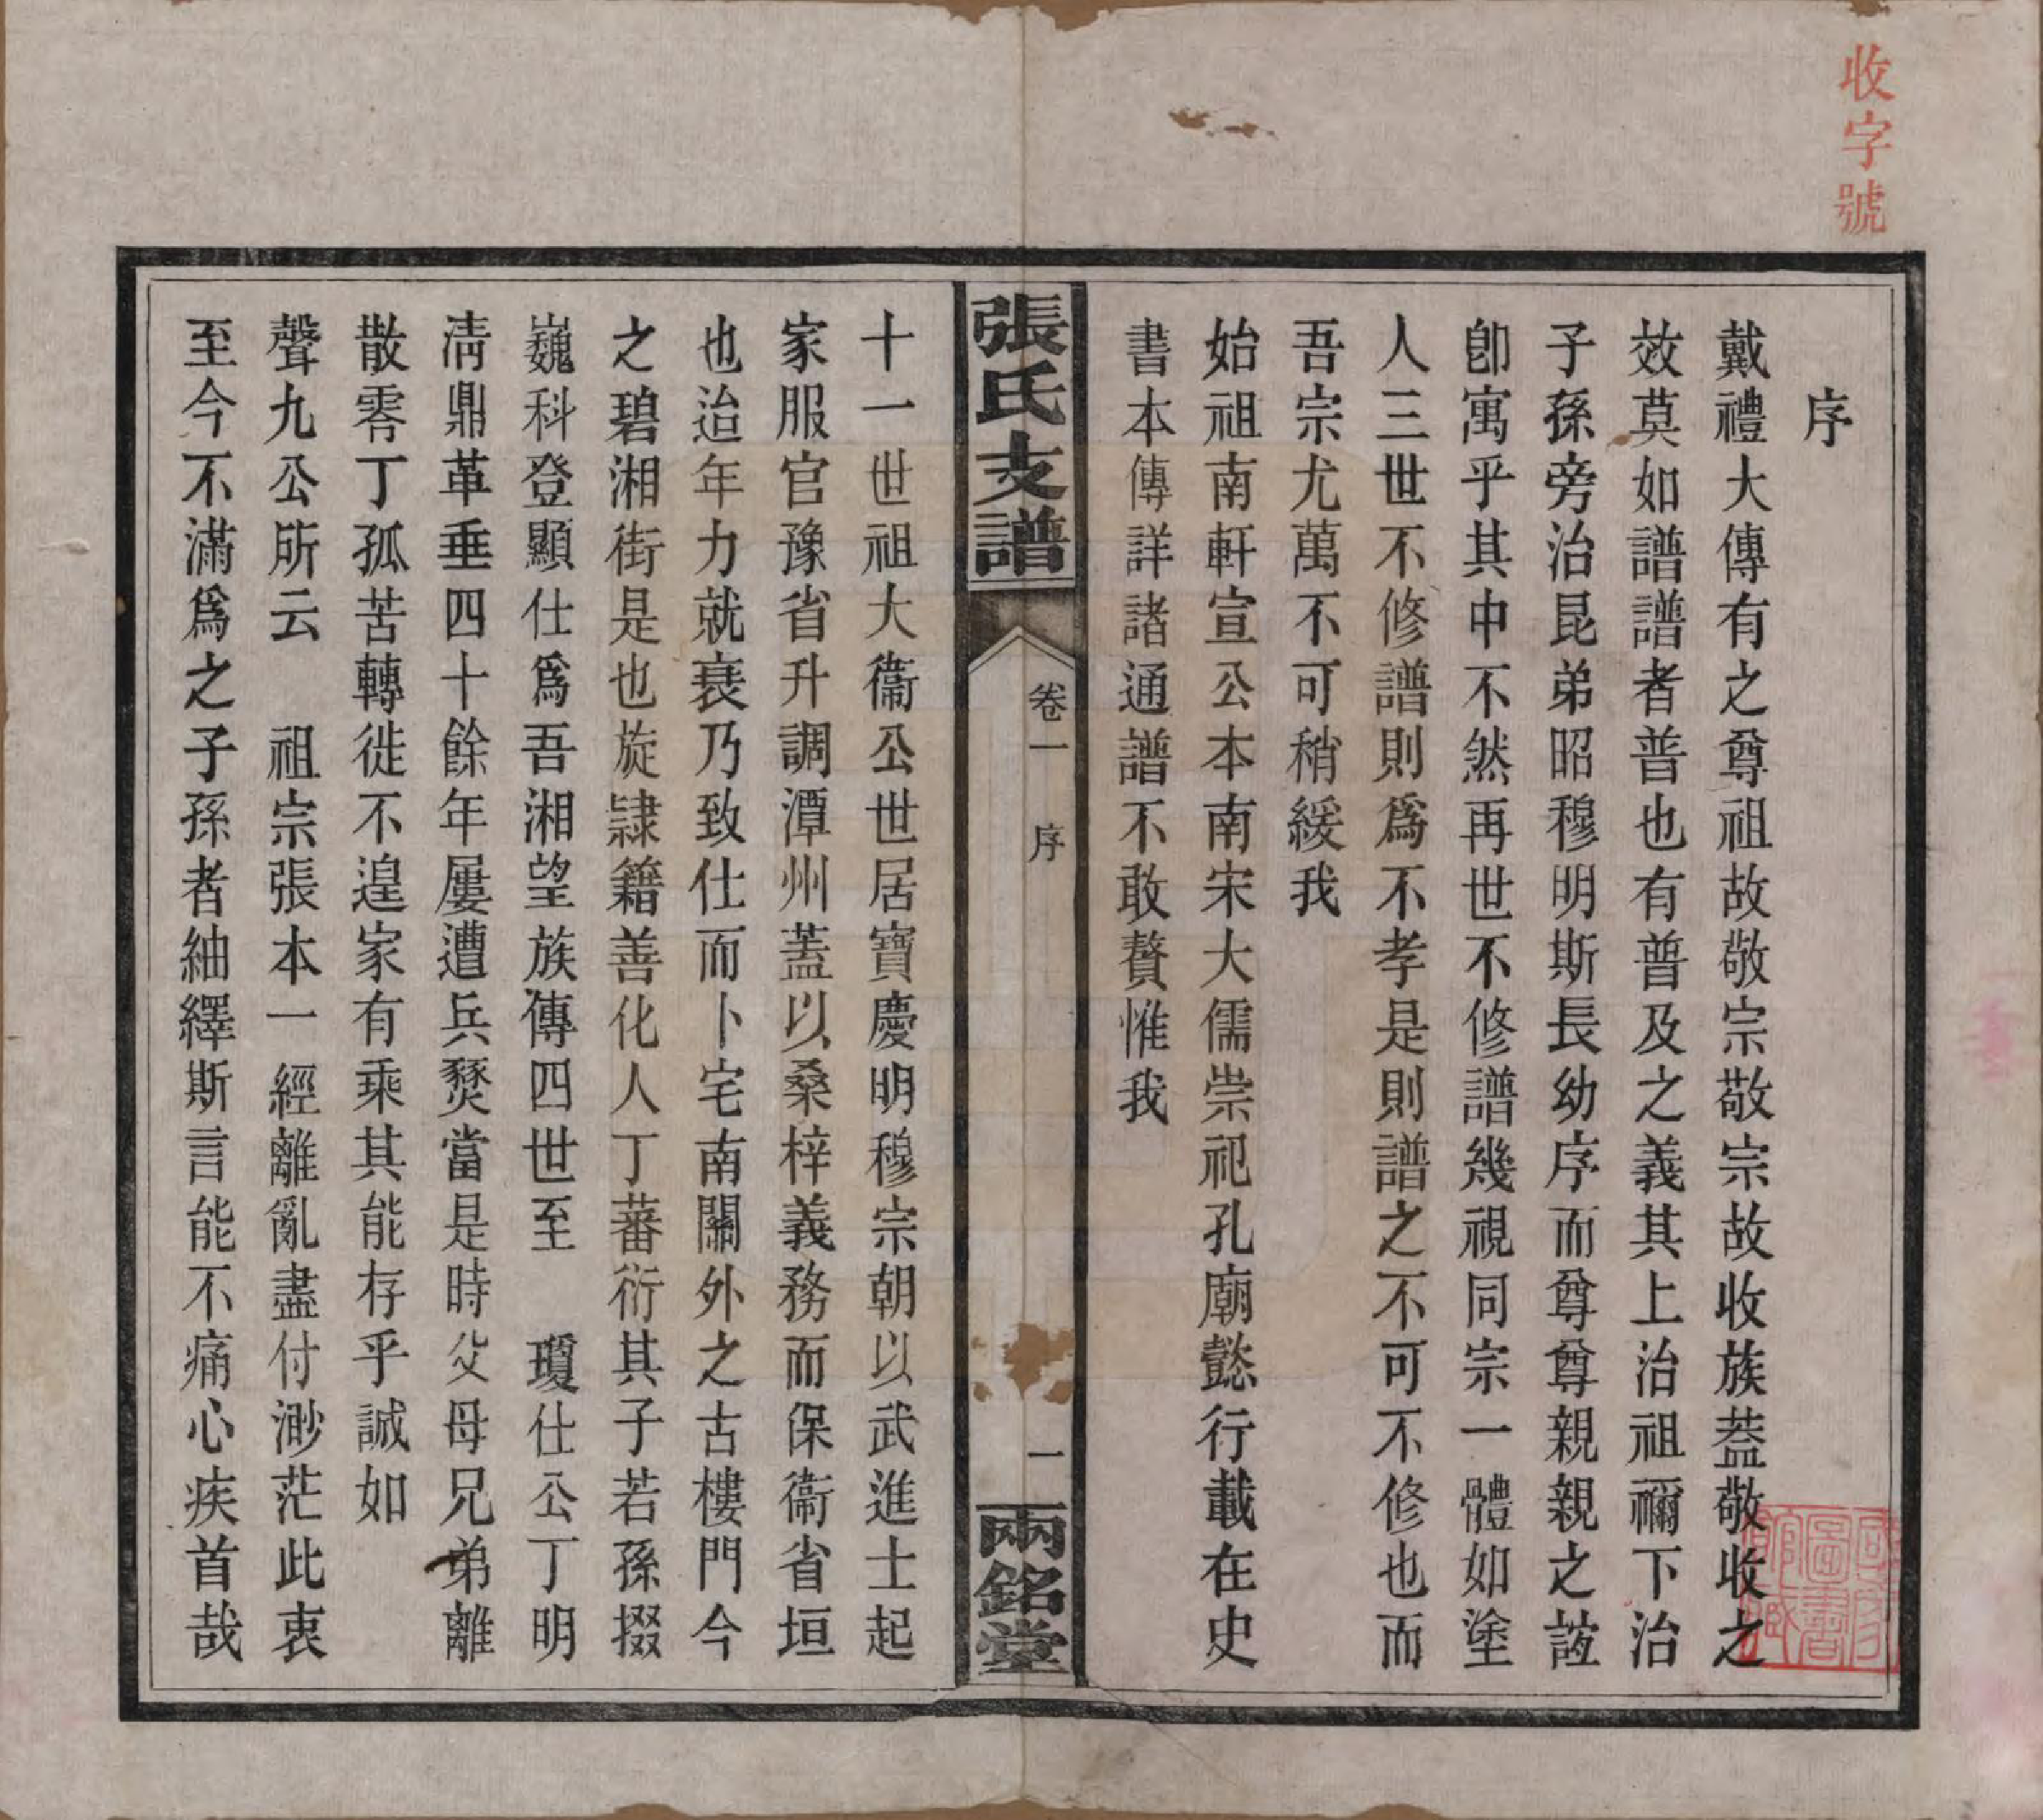 收字號
序
戴禮大傳有之尊祖故敬宗敬宗故收族葢敬收之
效莫如譜譜者普也有普及之義其上治祖禰下治
子孫旁治昆弟昭穆明斯長幼序而尊尊親親之誼
卽寓乎其中不然再世不修譜幾視同宗一體如塗
人三世不修譜則爲不孝是則譜之不可不修也而
吾宗尤萬不可稍緩我
始祖南軒宣公本南宋大儒崇祀孔廟懿行載在史
書本傳詳諸通譜不敢贅惟我
張氏支譜
卷一
序
一
兩銘堂
十一世祖大衞公世居寶慶明穆宗朝以武進士起
家服官豫省升調潭州蓋以桑梓義務而保衞省垣
也迨年力就衰乃致仕而卜宅南關外之古樓門今
之碧湘街是也旋隷籍善化人丁蕃衍其子若孫掇
巍科登顯仕爲吾湘望族傳四世至　瓊仕公丁明
淸鼎革垂四十餘年屢遭兵燹當是時父母兄弟離
散零丁孤苦轉徙不遑家有乘其能存乎誠如
聲九公所云　祖宗張本一經離亂盡付渺茫此衷
至今不滿爲之子孫者紬繹斯言能不痛心疾首哉